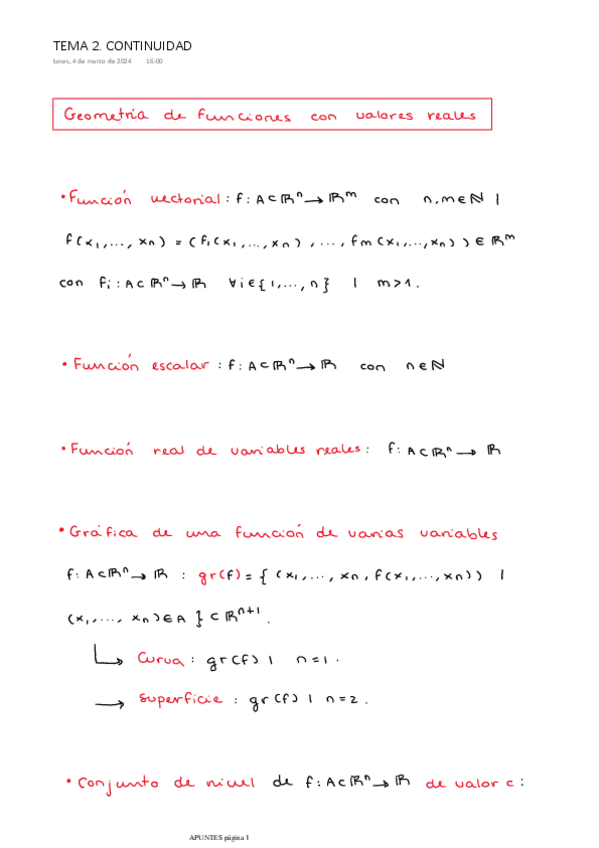 TEMA 2. CONTINUIDAD
lunes, 4 de marzo de 2024 16:00
Geometría de funciones con valores reales
• Función vectorial : f : A ⊂ ℝⁿ → ℝᵐ con n, m ∈ ℕ |
f(x₁, ..., xₙ) = (f₁(x₁, ..., xₙ), ..., fₘ(x₁, ..., xₙ)) ∈ ℝᵐ
con fᵢ : A ⊂ ℝⁿ → ℝ ∀ i ∈ {1, ..., n} | m > 1.
• Función escalar : f : A ⊂ ℝⁿ → ℝ con n ∈ ℕ
• Función real de variables reales : f : A ⊂ ℝⁿ → ℝ
• Gráfica de una función de varias variables
f : A ⊂ ℝⁿ → ℝ : gr(f) = { (x₁, ..., xₙ, f(x₁, ..., xₙ)) |
(x₁, ..., xₙ) ∈ A } ⊂ ℝⁿ⁺¹.
↳ Curva : gr(f) | n = 1.
→ Superficie : gr(f) | n = 2.
• Conjunto de nivel de f : A ⊂ ℝⁿ → ℝ de valor c :
APUNTES página 1